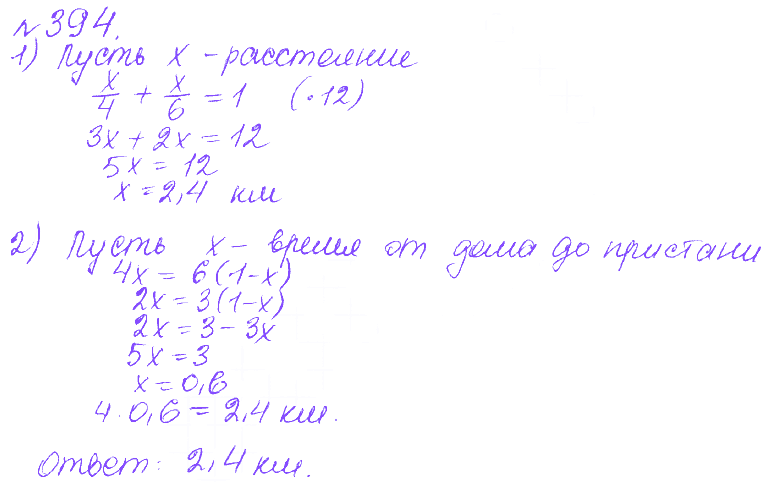 № 394.
1) Пусть x - расстояние
x/4 + x/6 = 1 (·12)
3x + 2x = 12
5x = 12
x = 2,4 км
2) Пусть x - время от дома до пристани
4x = 6(1-x)
2x = 3(1-x)
2x = 3 - 3x
5x = 3
x = 0,6
4·0,6 = 2,4 км.
Ответ: 2,4 км.